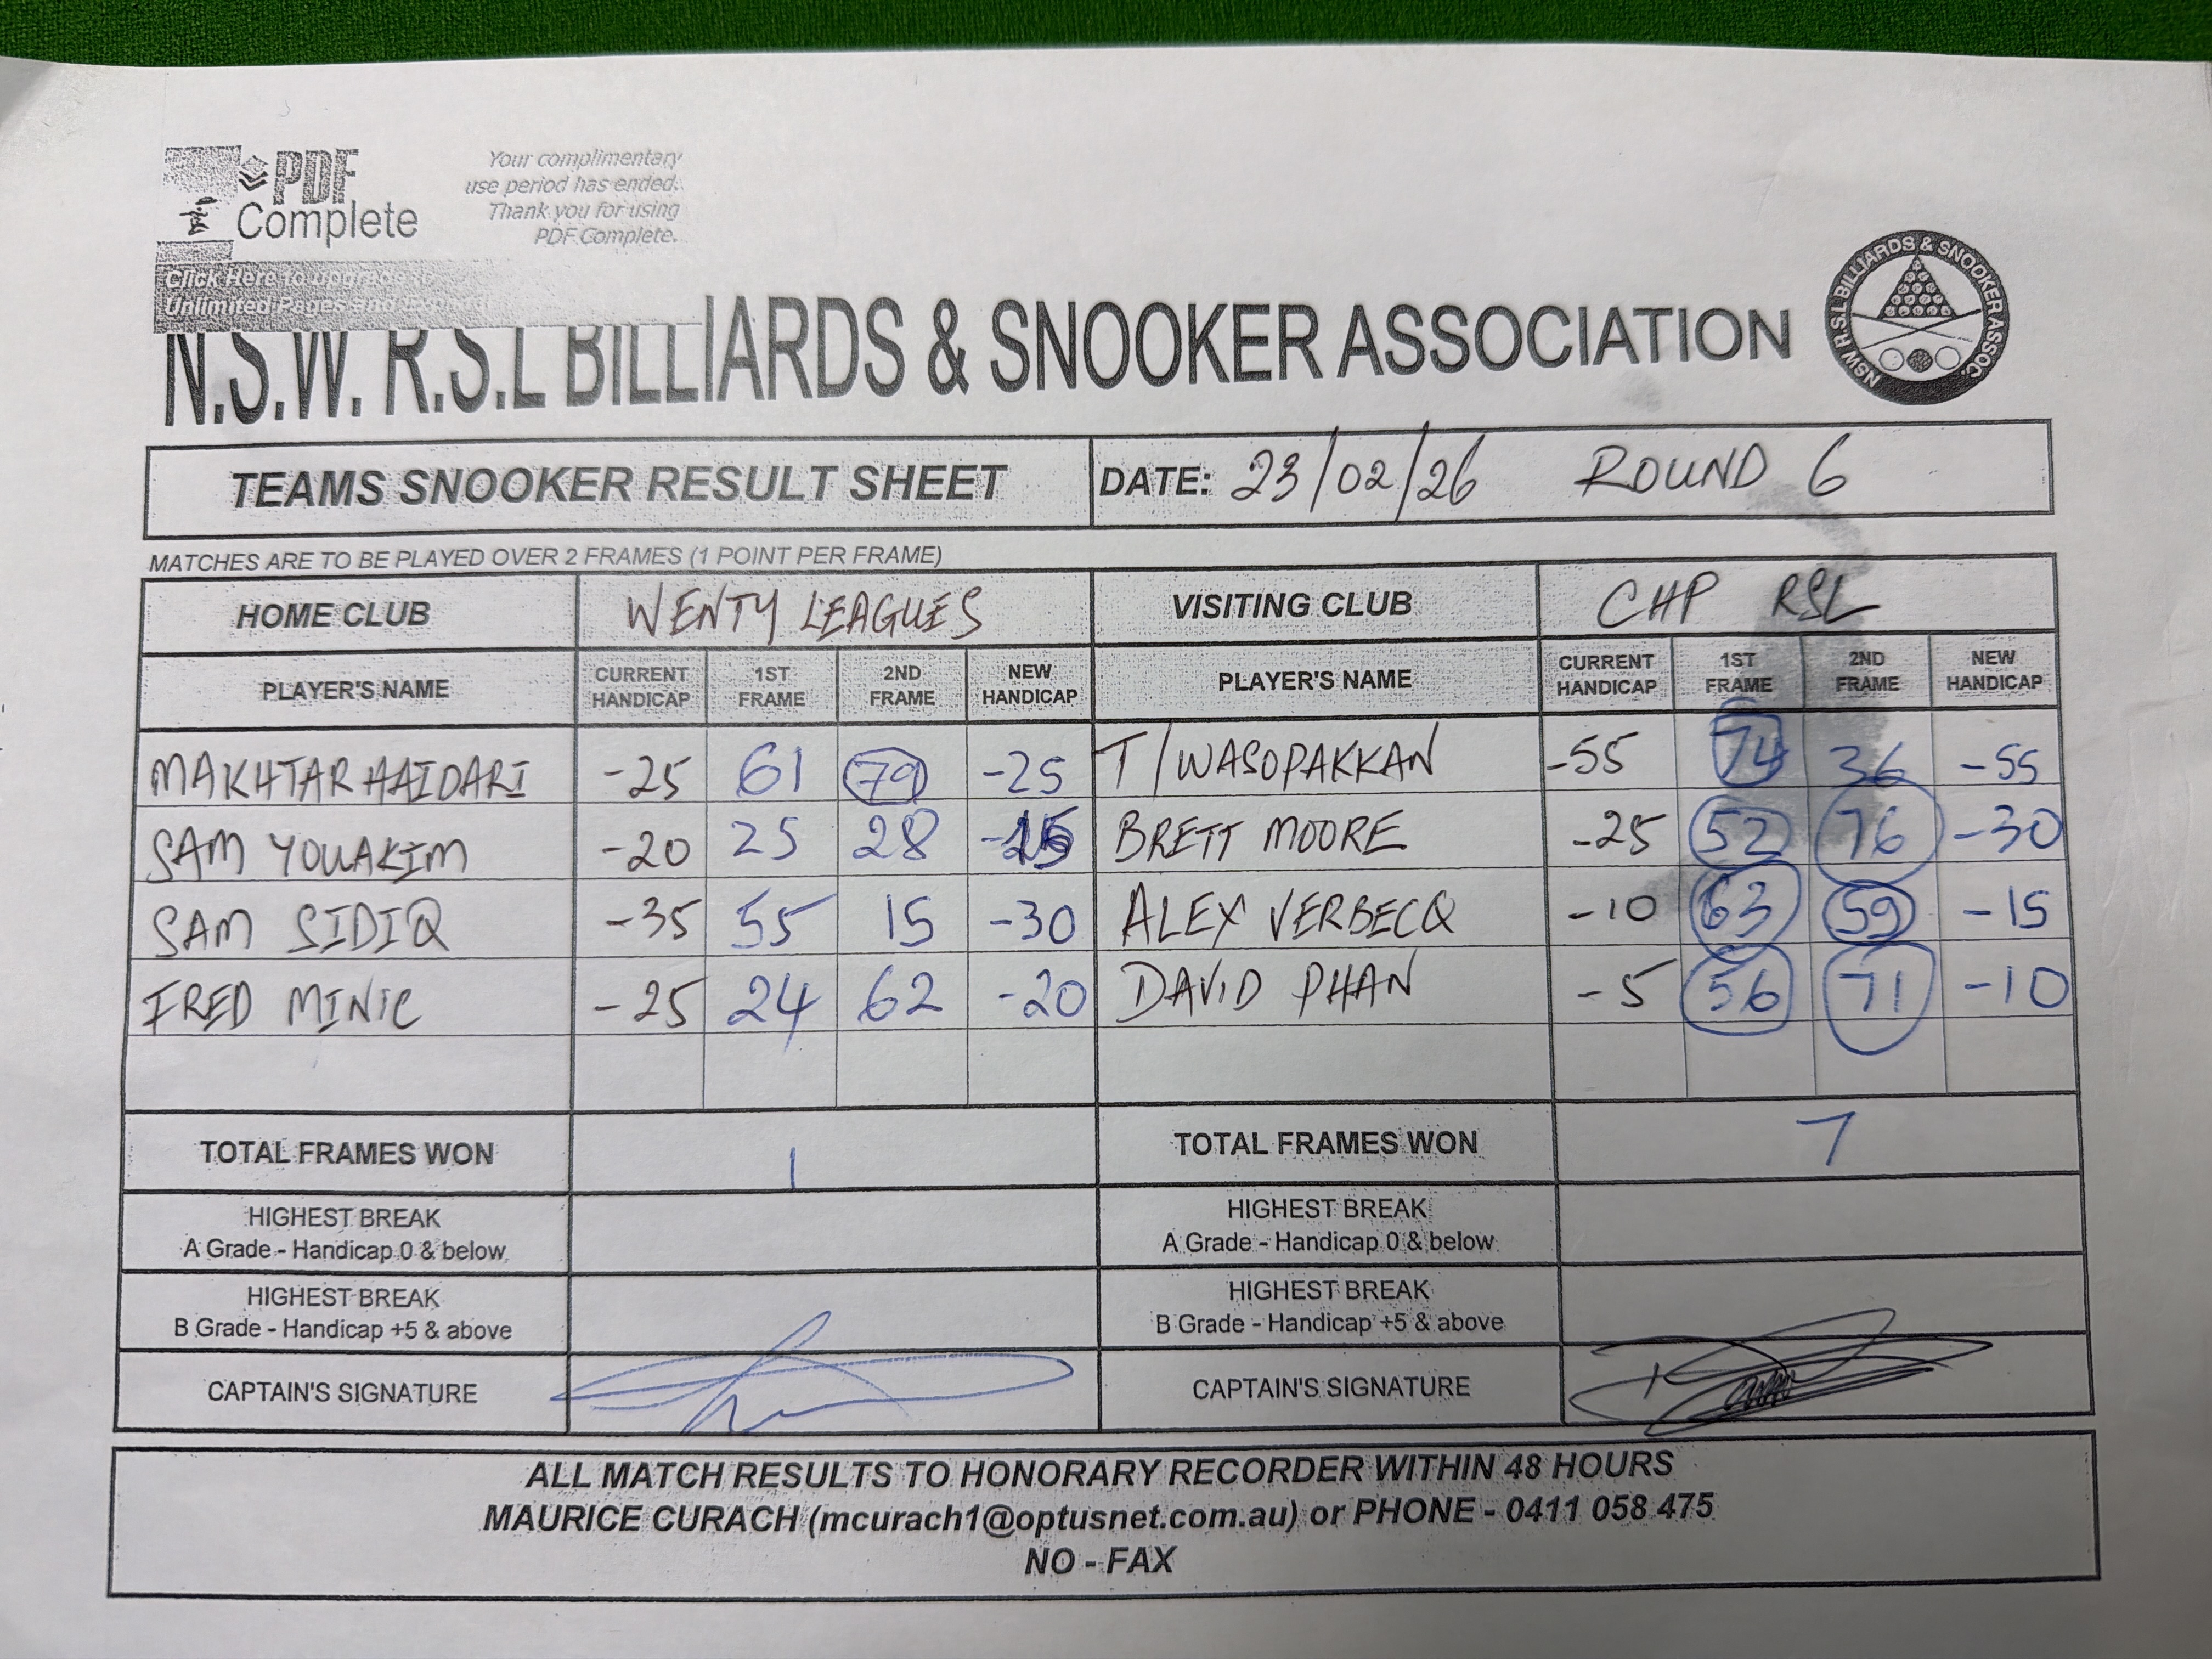 PDF
Complete
Your complimentary
use period has ended.
Thank you for using
PDF Complete.
Click Here to upgrade to
Unlimited Pages and
N.S.W. R.S.L BILLIARDS & SNOOKER ASSOCIATION
NSW R.S.L BILLIARDS & SNOOKER ASSOC.
TEAMS SNOOKER RESULT SHEET DATE: 23/02/26 ROUND 6
MATCHES ARE TO BE PLAYED OVER 2 FRAMES (1 POINT PER FRAME)
HOME CLUB WENTY LEAGUES VISITING CLUB CHP RSL
PLAYER'S NAME CURRENT HANDICAP 1ST FRAME 2ND FRAME NEW HANDICAP PLAYER'S NAME CURRENT HANDICAP 1ST FRAME 2ND FRAME NEW HANDICAP
MAKHTAR HAIDARI -25 61 79 -25 T/WASOPAKKAN -55 74 36 -55
SAM YOUAKIM -20 25 28 -15 BRETT MOORE -25 52 76 -30
SAM SIDIQ -35 55 15 -30 ALEX VERBECQ -10 63 59 -15
FRED MINIC -25 24 62 -20 DAVID PHAN -5 56 71 -10
TOTAL FRAMES WON 1 TOTAL FRAMES WON 7
HIGHEST BREAK HIGHEST BREAK
A Grade - Handicap 0 & below A Grade - Handicap 0 & below
HIGHEST BREAK HIGHEST BREAK
B Grade - Handicap +5 & above B Grade - Handicap +5 & above
CAPTAIN'S SIGNATURE CAPTAIN'S SIGNATURE
ALL MATCH RESULTS TO HONORARY RECORDER WITHIN 48 HOURS
MAURICE CURACH (mcurach1@optusnet.com.au) or PHONE - 0411 058 475
NO - FAX